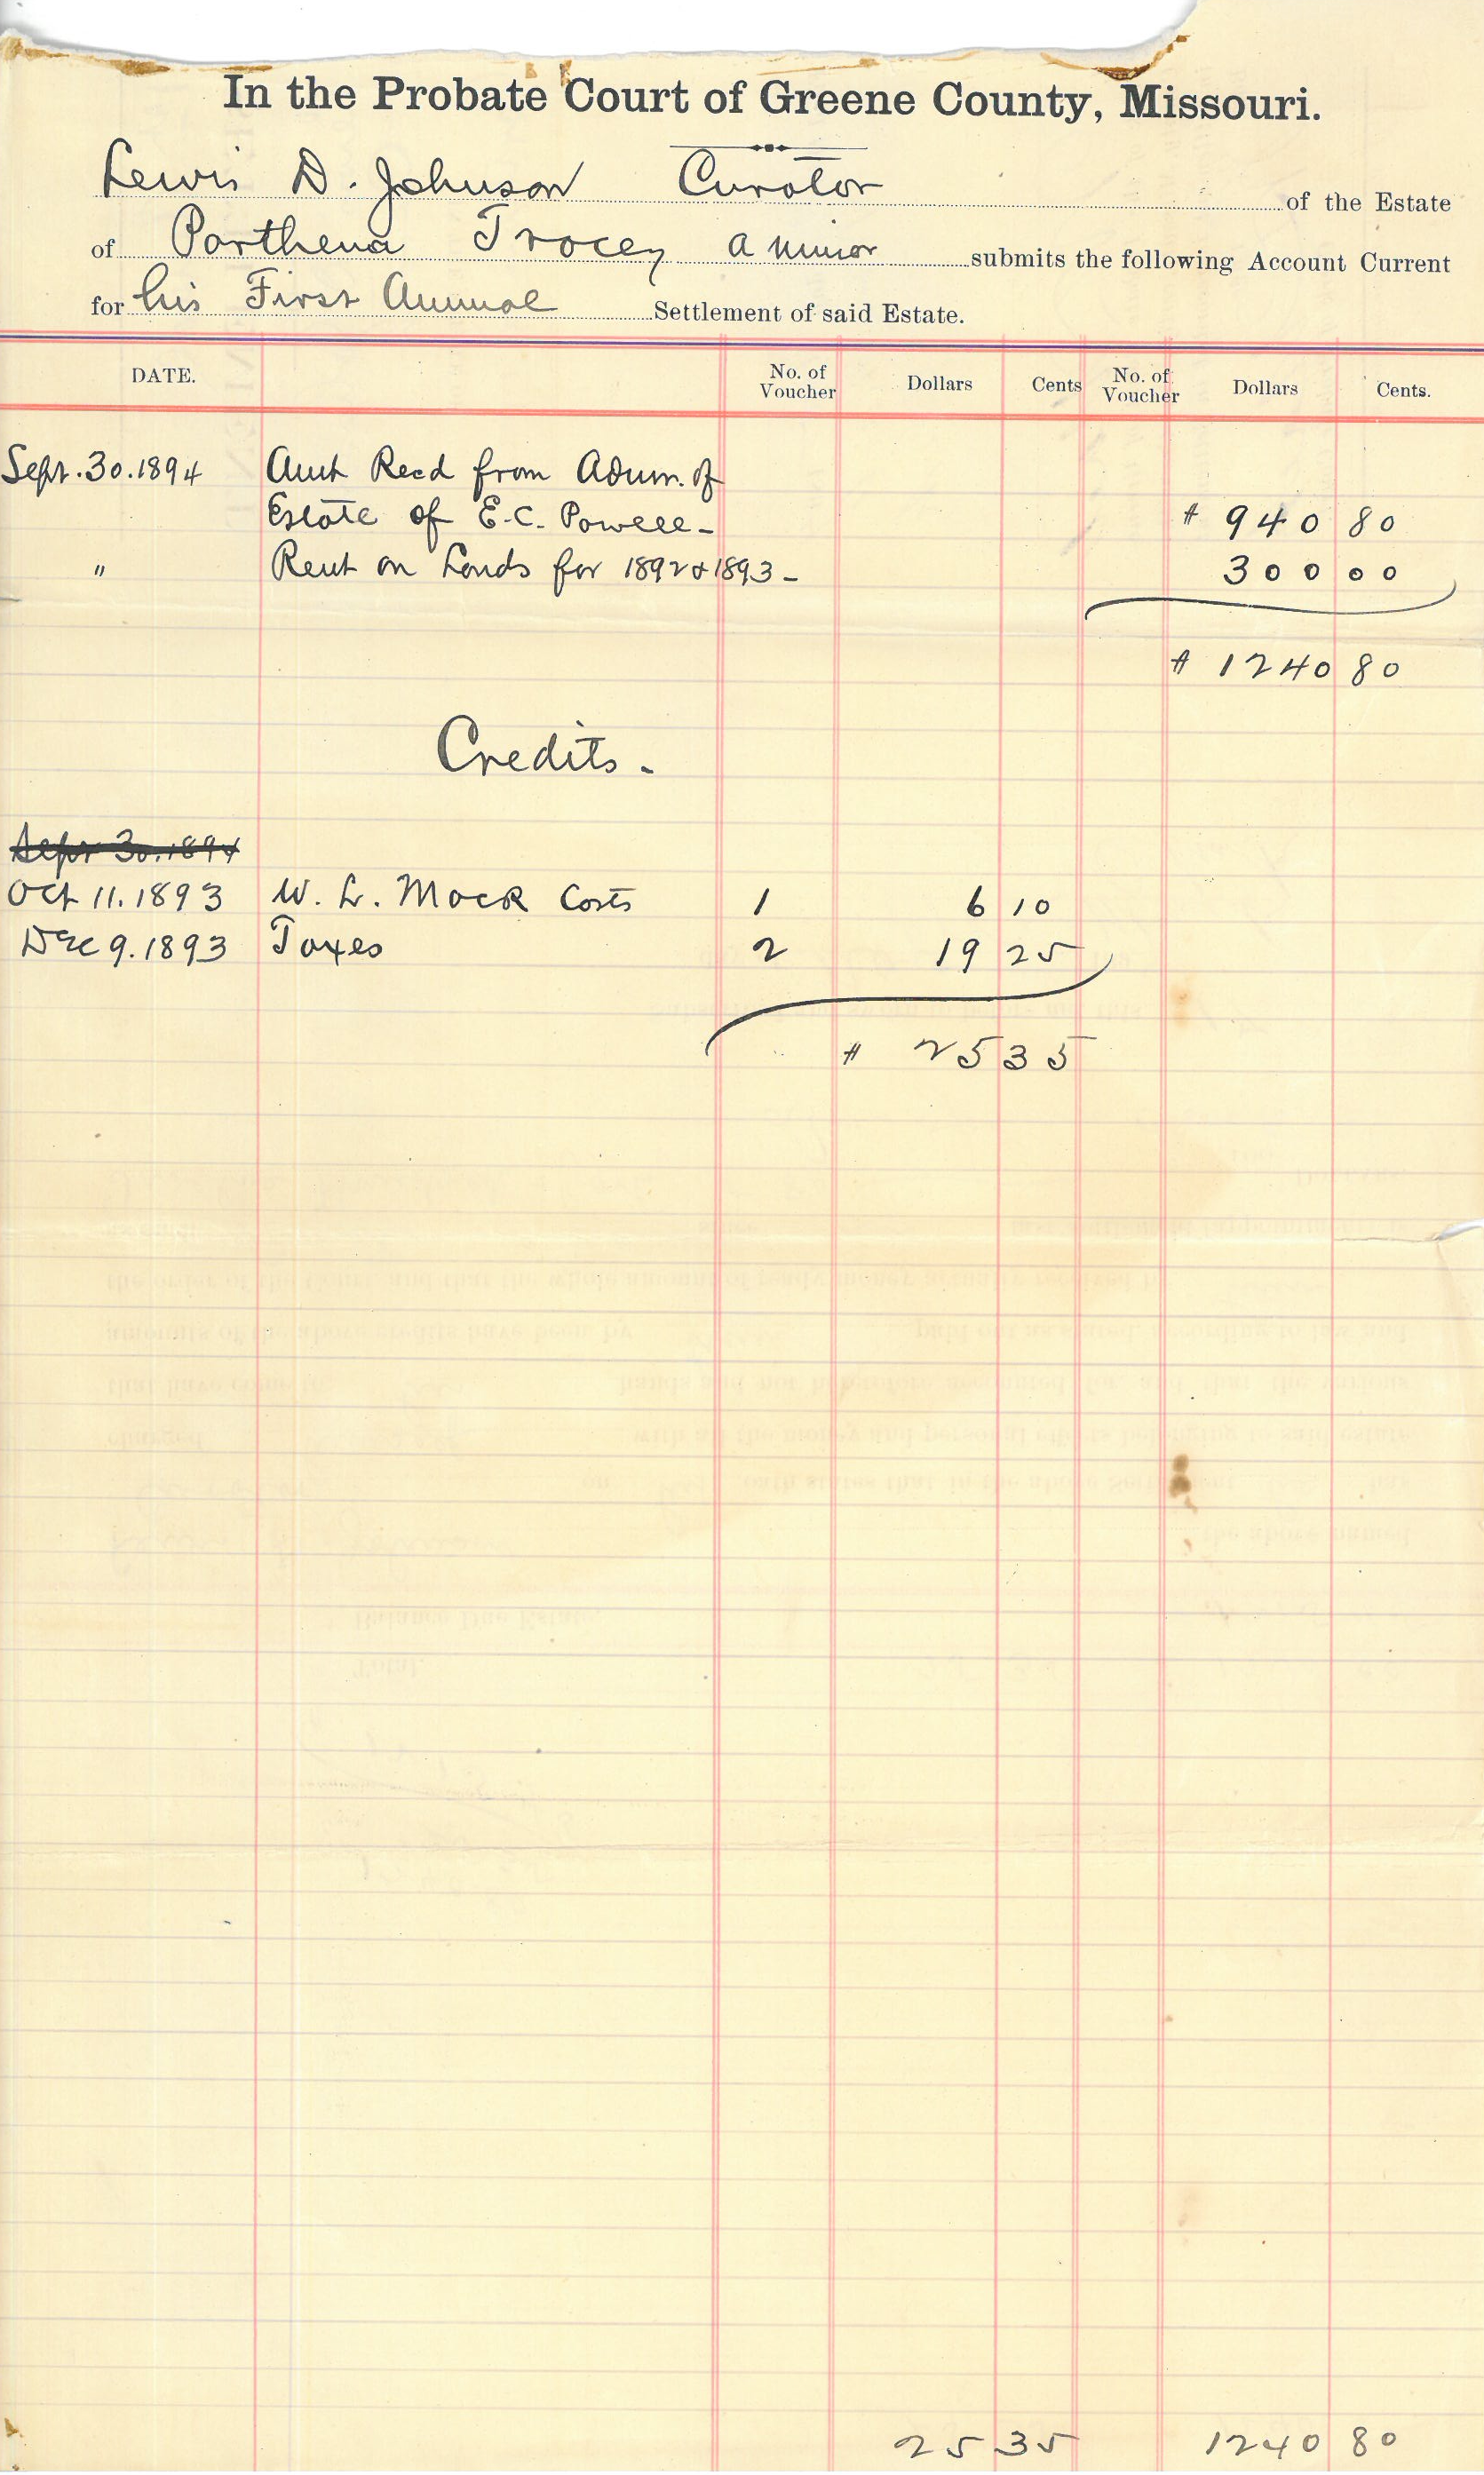 In the Probate Court of Greene County, Missouri.
Lewis D. Johnson Curator of the Estate
of Parthena Tracey a minor submits the following Account Current
for his First Annual Settlement of said Estate.
DATE. No. of Voucher Dollars Cents No. of Voucher Dollars Cents.
Sept. 30. 1894 Amt Recd from Adm. of
Estate of E. C. Powell - $ 940 80
" Rent on Lands for 1892 & 1893 - 300 00
$ 1240 80
Credits -
Sept 30. 1894
Oct 11. 1893 W. L. Mack Costs 1 6 10
Dec 9. 1893 Taxes 2 19 25
$ 25 35
25 35 1240 80